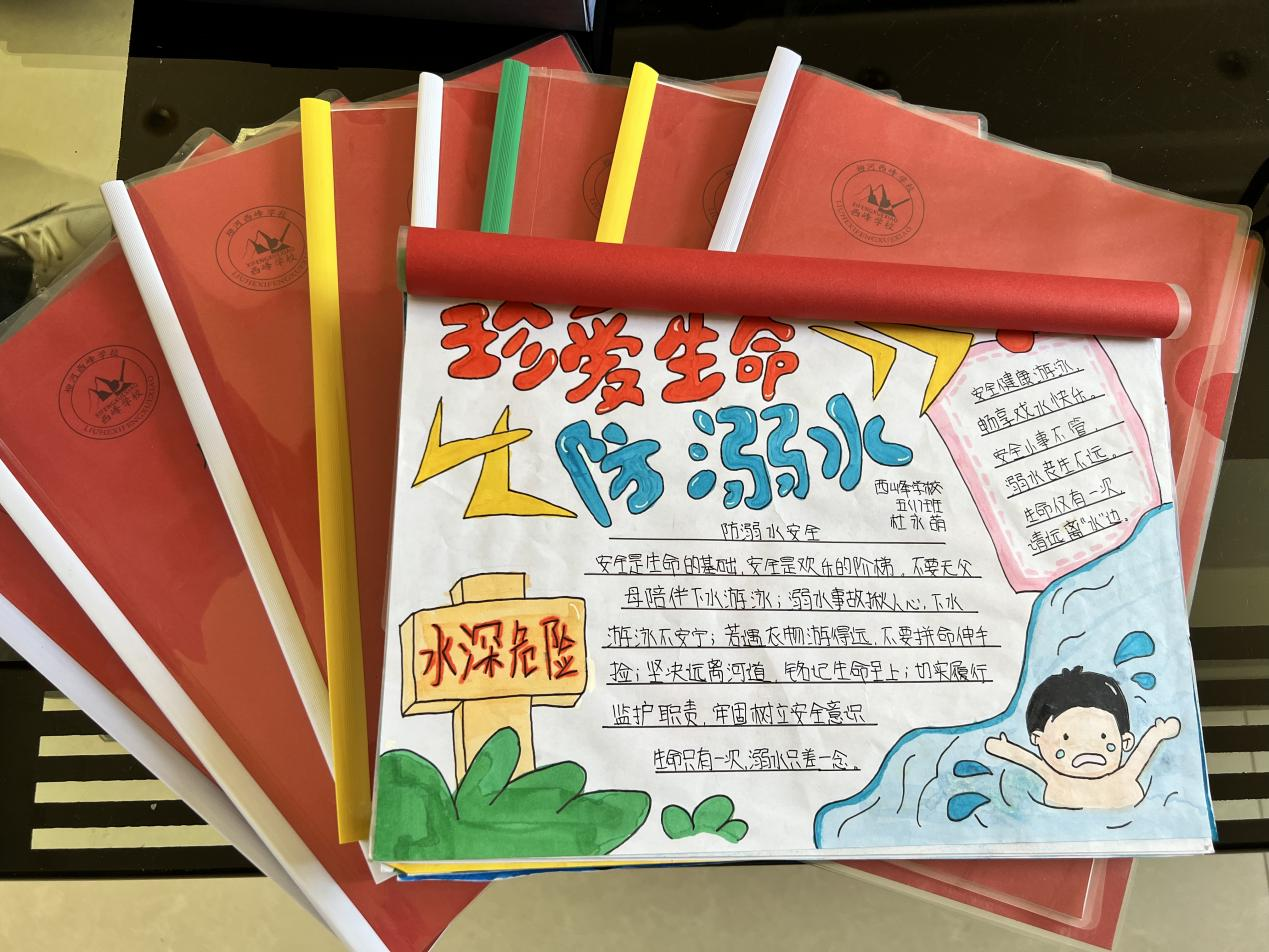 珍爱生命
防溺水
西峰学校
五(1)班
杜永萌
防溺水安全
安全是生命的基础,安全是欢乐的阶梯。不要无父
母陪伴下水游泳;溺水事故揪人心,下水
游泳不安宁;若遇衣物游得远,不要拼命伸手
捡;坚决远离河道,铭记生命至上;切实履行
监护职责,牢固树立安全意识
生命只有一次,溺水只差一念。
安全健康游泳,
畅享戏水快乐。
安全小事不管,
溺水丧生不远。
生命仅有一次,
请远离"水"边。
水深危险
柳河西峰学校
XIFENGXUEXIAO
西峰学校
LIUHEXIFENGXUEXIAO
柳河西峰学校
XIFENGXUEXIAO
西峰学校
LIUHEXIFENGXUEXIAO
柳河西峰学校
XIFENGXUEXIAO
西峰学校
LIUHEXIFENGXUEXIAO